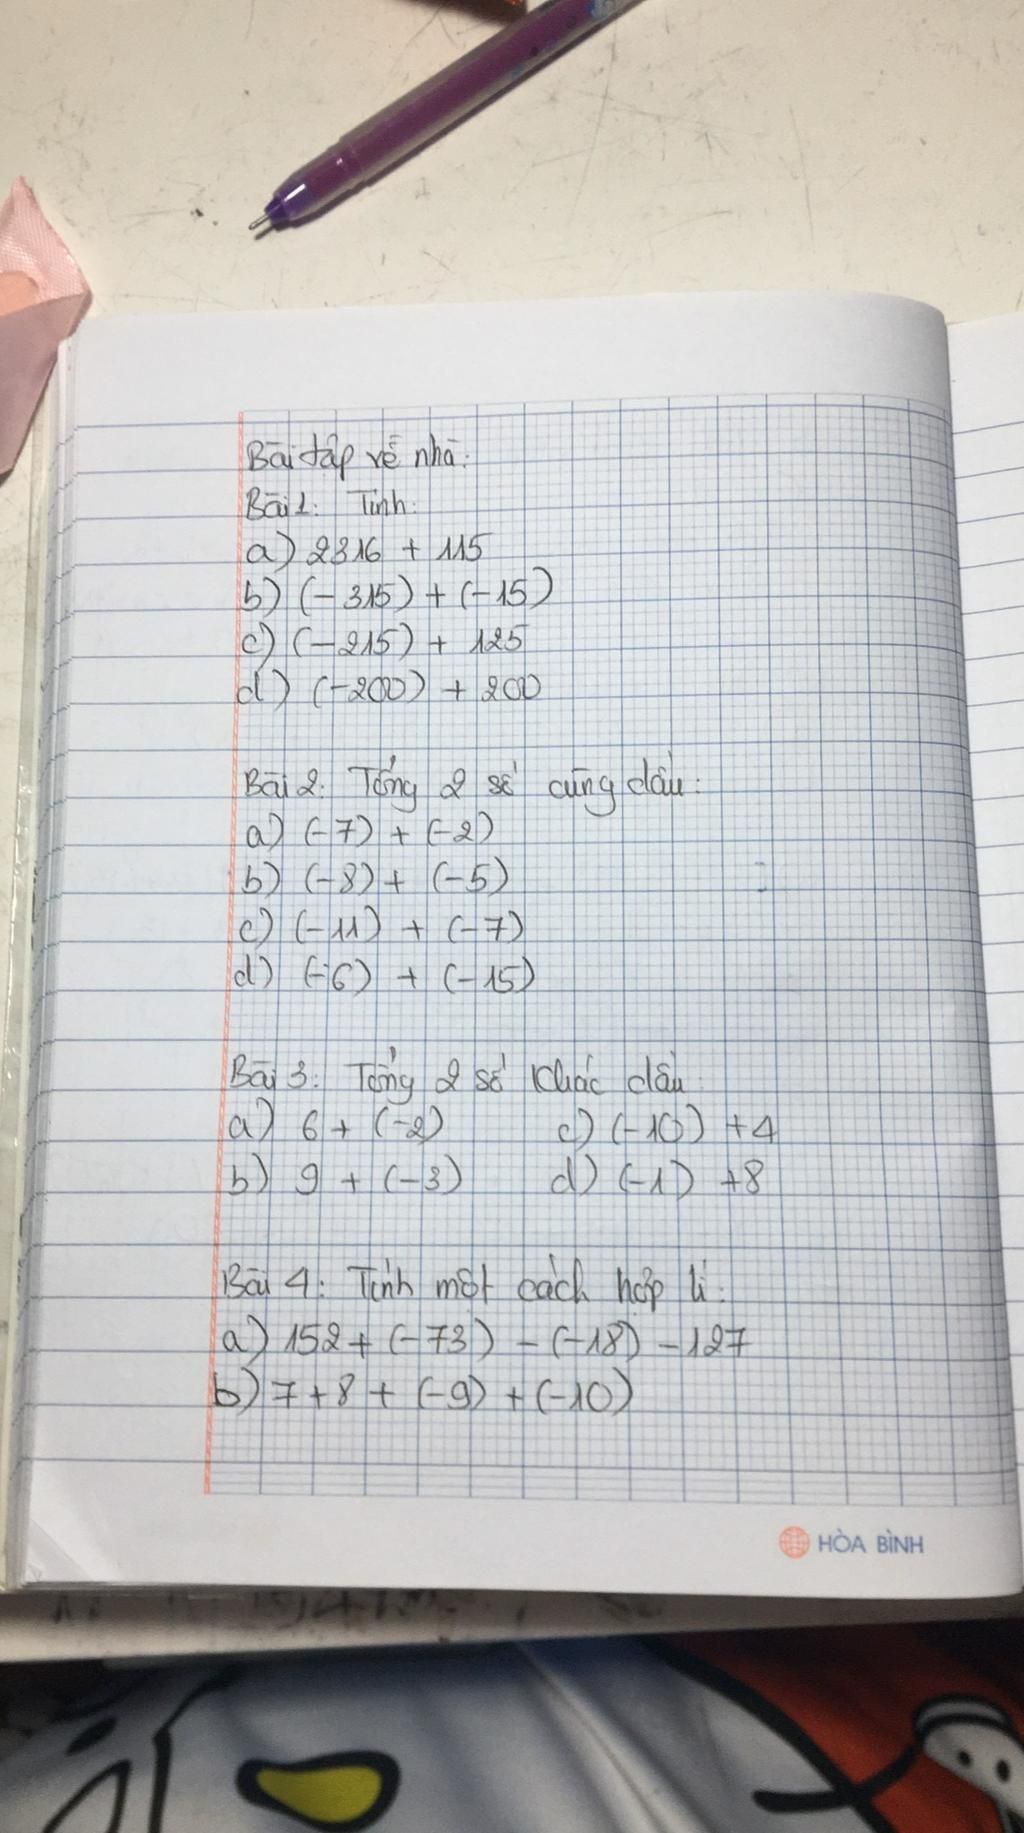 Bài tập về nhà:
Bài 1: Tính:
a) 2316 + 115
b) (-315) + (-15)
c) (-215) + 125
d) (-200) + 200
Bài 2: Tổng 2 số cùng dấu:
a) (-7) + (-2)
b) (-8) + (-5)
c) (-11) + (-7)
d) (-6) + (-15)
Bài 3: Tổng 2 số khác dấu
a) 6 + (-2) c) (-10) + 4
b) 9 + (-3) d) (-1) + 8
Bài 4: Tính một cách hợp lí:
a) 152 + (-73) - (-18) - 127
b) 7 + 8 + (-9) + (-10)
HÒA BÌNH